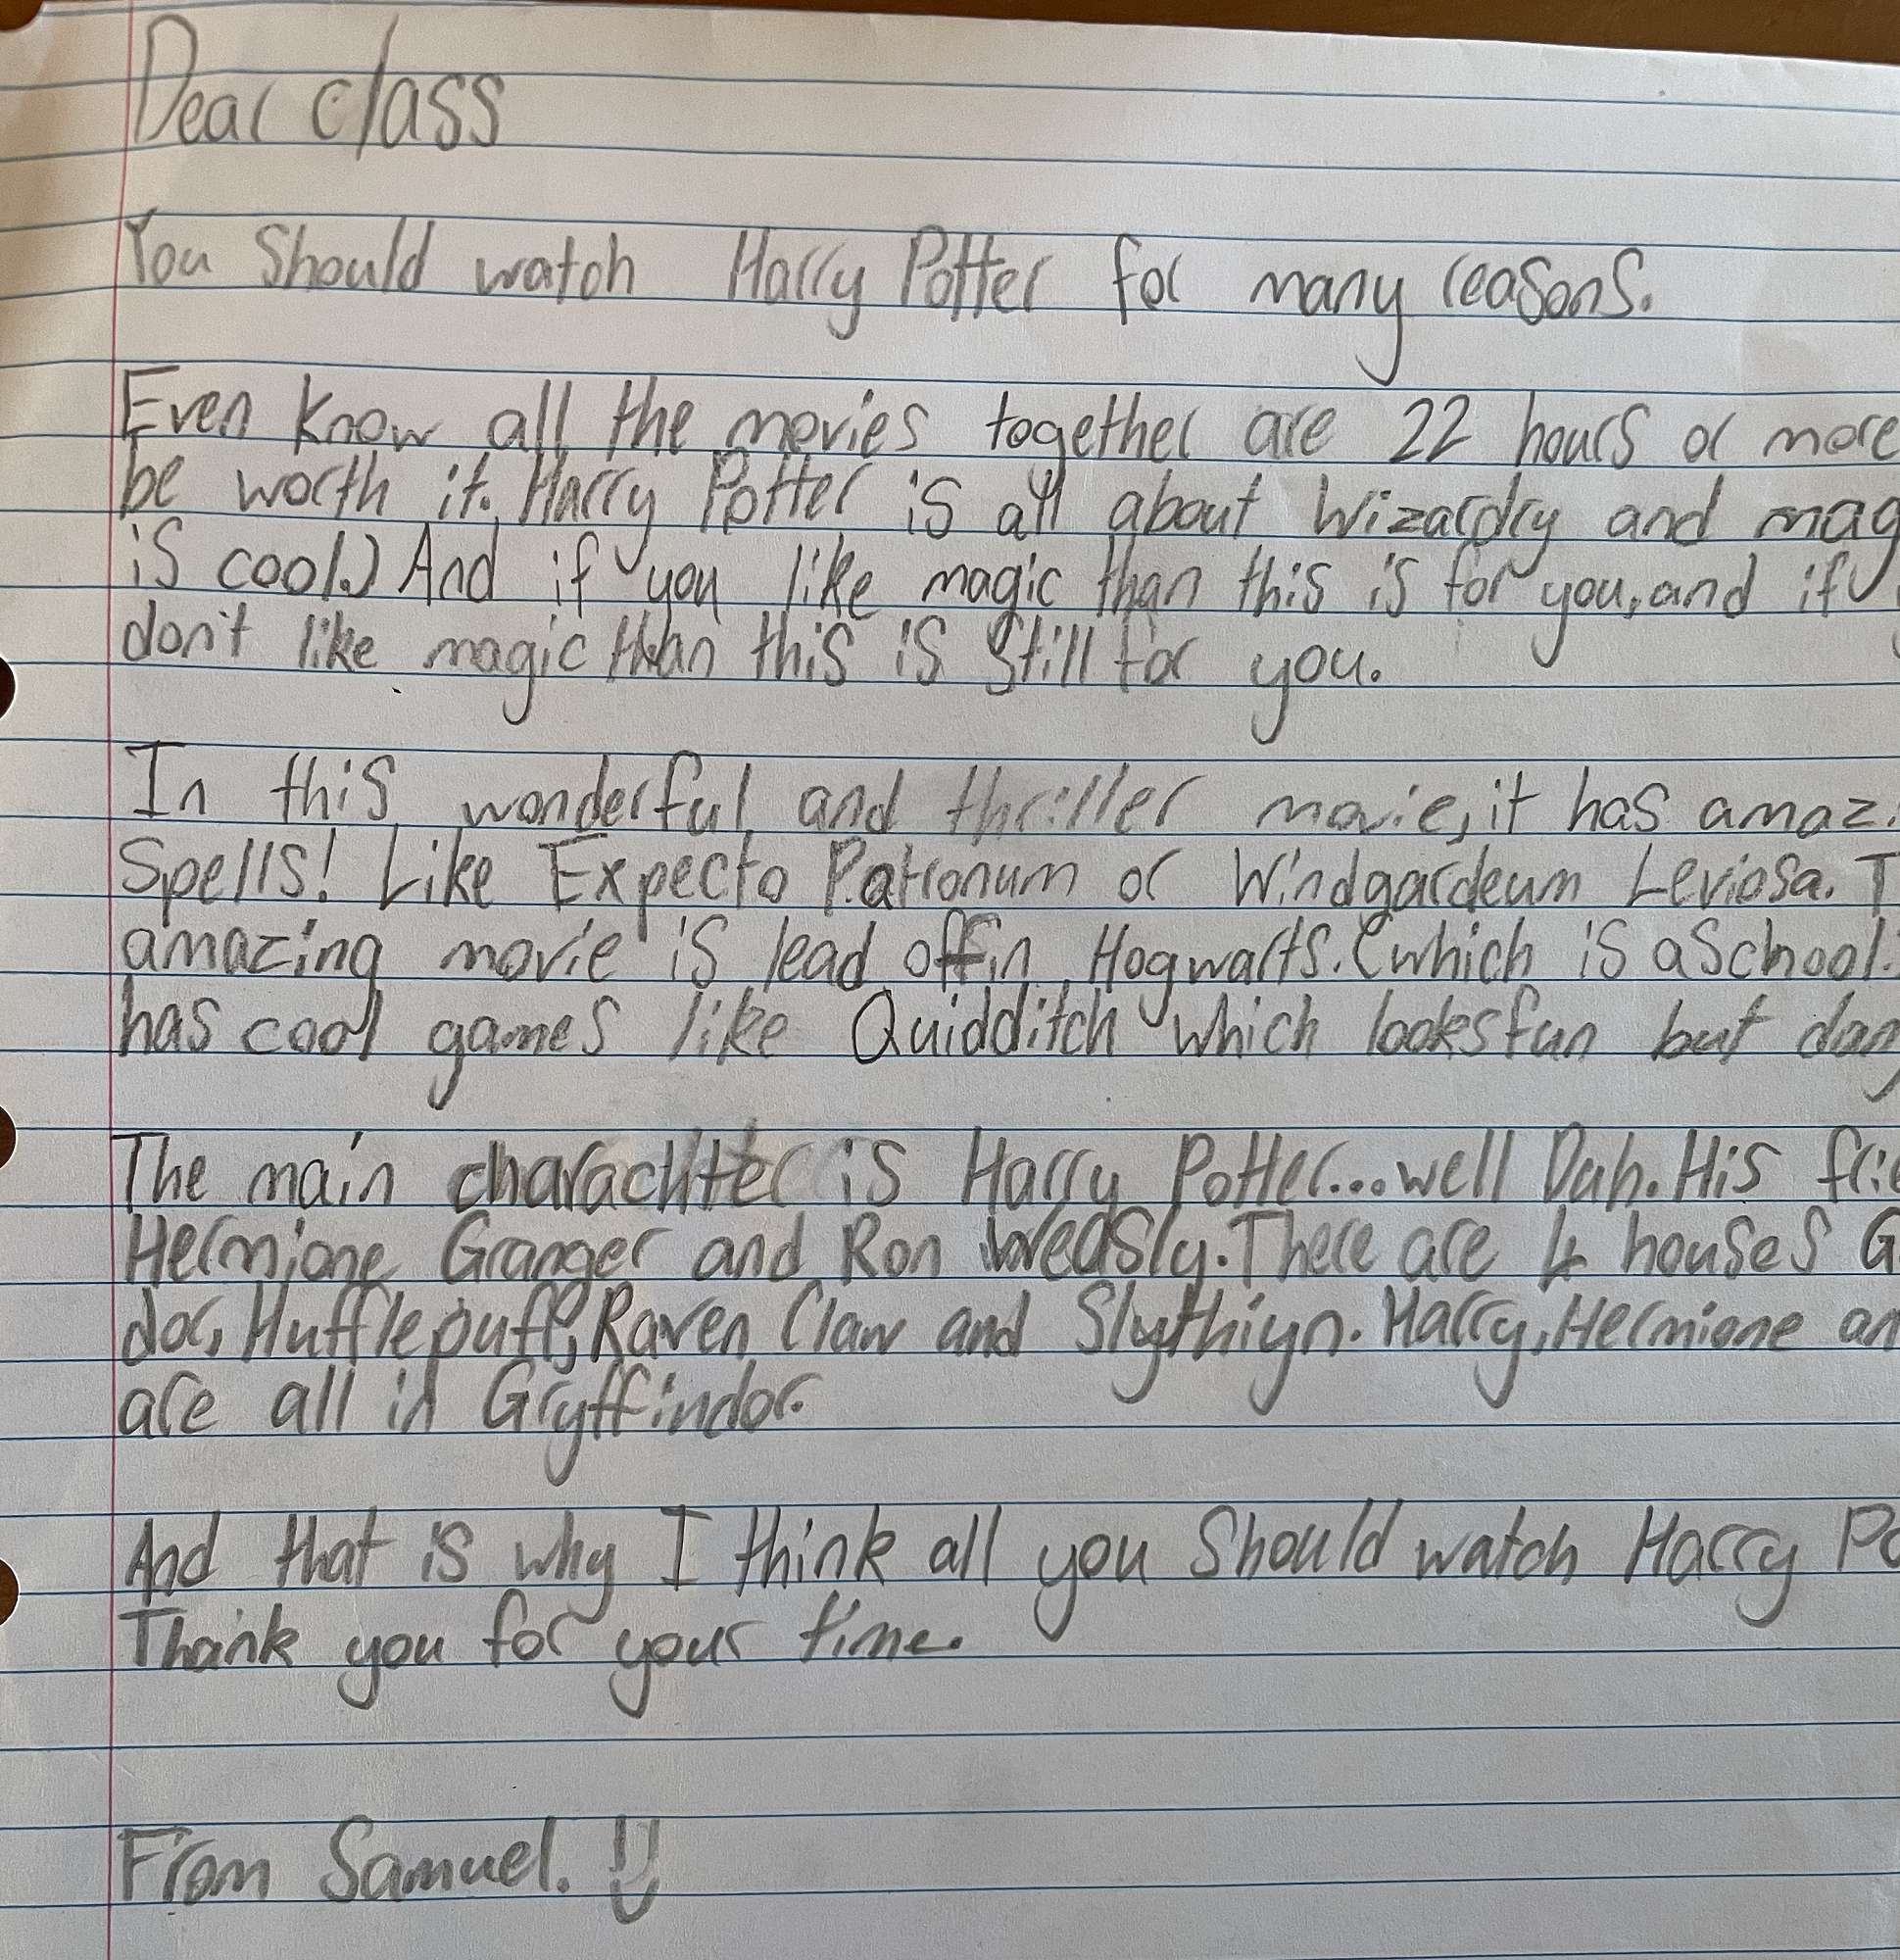 Dear class
You Should watch Harry Potter for many reasons.
Even know all the movies together are 22 hours or more
be worth it. Harry Potter is all about Wizardry and mag
is cool.) And if you like magic than this is for you, and if
don't like magic than this is still for you.
In this wonderful and thriller movie, it has amaz
Spells! Like Expecto Patronum or Windgardeum Leviosa. T
amazing movie is lead off in Hogwarts. (which is a School
has cool games like Quidditch which looks fun but dan
The main charachter is Harry Potter...well Duh. His frie
Hermione Granger and Ron Weasly. There are 4 houses G
dor, Hufflepuff, Raven Claw and Slythiyn. Harry, Hermione an
are all in Gryffindor.
And that is why I think all you Should watch Harry Po
Thank you for your time.
From Samuel.